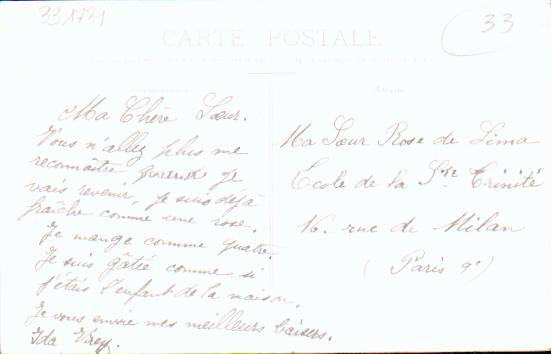 331731
33
CARTE POSTALE
Ma Chère Sœur.
Vous n'allez plus me
reconnaître quand je
vais revenir, je suis déjà
fraîche comme une rose.
Je mange comme quatre.
Je suis gâtée comme si
j'étais l'enfant de la maison.
Je vous envoie mes meilleurs baisers.
Ida
Ma Sœur Rose de Lima
École de la Ste Trinité
16. rue de Milan
(Paris 9e)